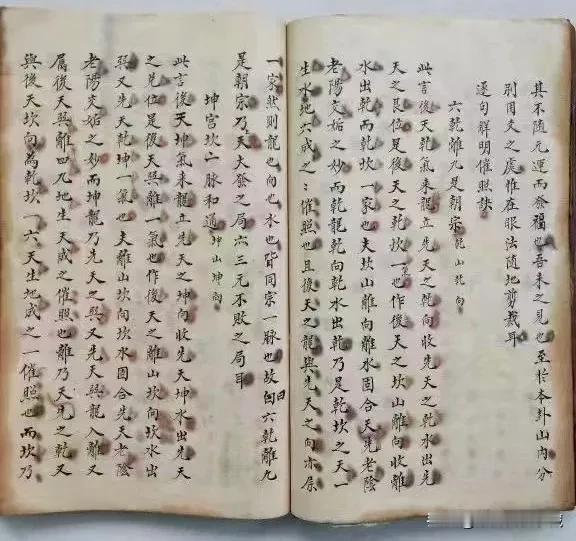 其不随元運而發福也吾未之見也至於本卦山内分
別用爻之處惟在眼法随地剪裁耳
逐句群明催照訣
六乾離九是朝宗 乾山乾向
此言後天乾氣来龍立先天之乾向收先天之乾水出先
天之艮位是後天之乾坎一也作後天之坎山離向收離
水出乾而乾坎一家也夫坎山離向離水固合天先老陰
老陽交媾之妙而乾龍乾向乾水出乾乃是乾坎之天一
生水地六成之之催照也且後天之龍與先天之向亦属
一家然则龍也向也水也皆同宗一脉也故曰六乾離九
是朝宗乃天大發之局六三元不敗之局耳
坤宫坎二脉和道 坤山坤向
此言後天坤氣来龍立先天之坤向收先天坤水出先天
之兑位是後天與離一氣也作後天之離山坎向坎水出
巽又先天乾坤一氣也夫離山坎向坎水固合先天老陰
老陽交媾之妙而坤龍乃先天之巽又先天巽龍入離又
属後天巽離四九地生天成之催照也離乃天先之乾又
與後天坎向為乾坎一六天生地成之一催照也而坎乃